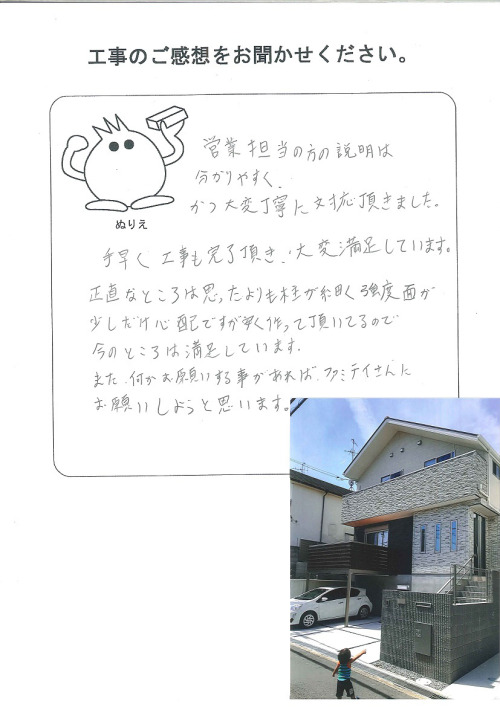 工事のご感想をお聞かせください。
ぬりえ
営業担当の方の説明は
分かりやすく、
かつ大変丁寧に対応頂きました。
手早く工事も完了頂き、大変満足しています。
正直なところは思ったよりも柱が細く強度面が
少しだけ心配ですが、作って頂いてるので
今のところは満足しています。
また、何かお願いする事があれば、ファミテイさんに
お願いしようと思います。